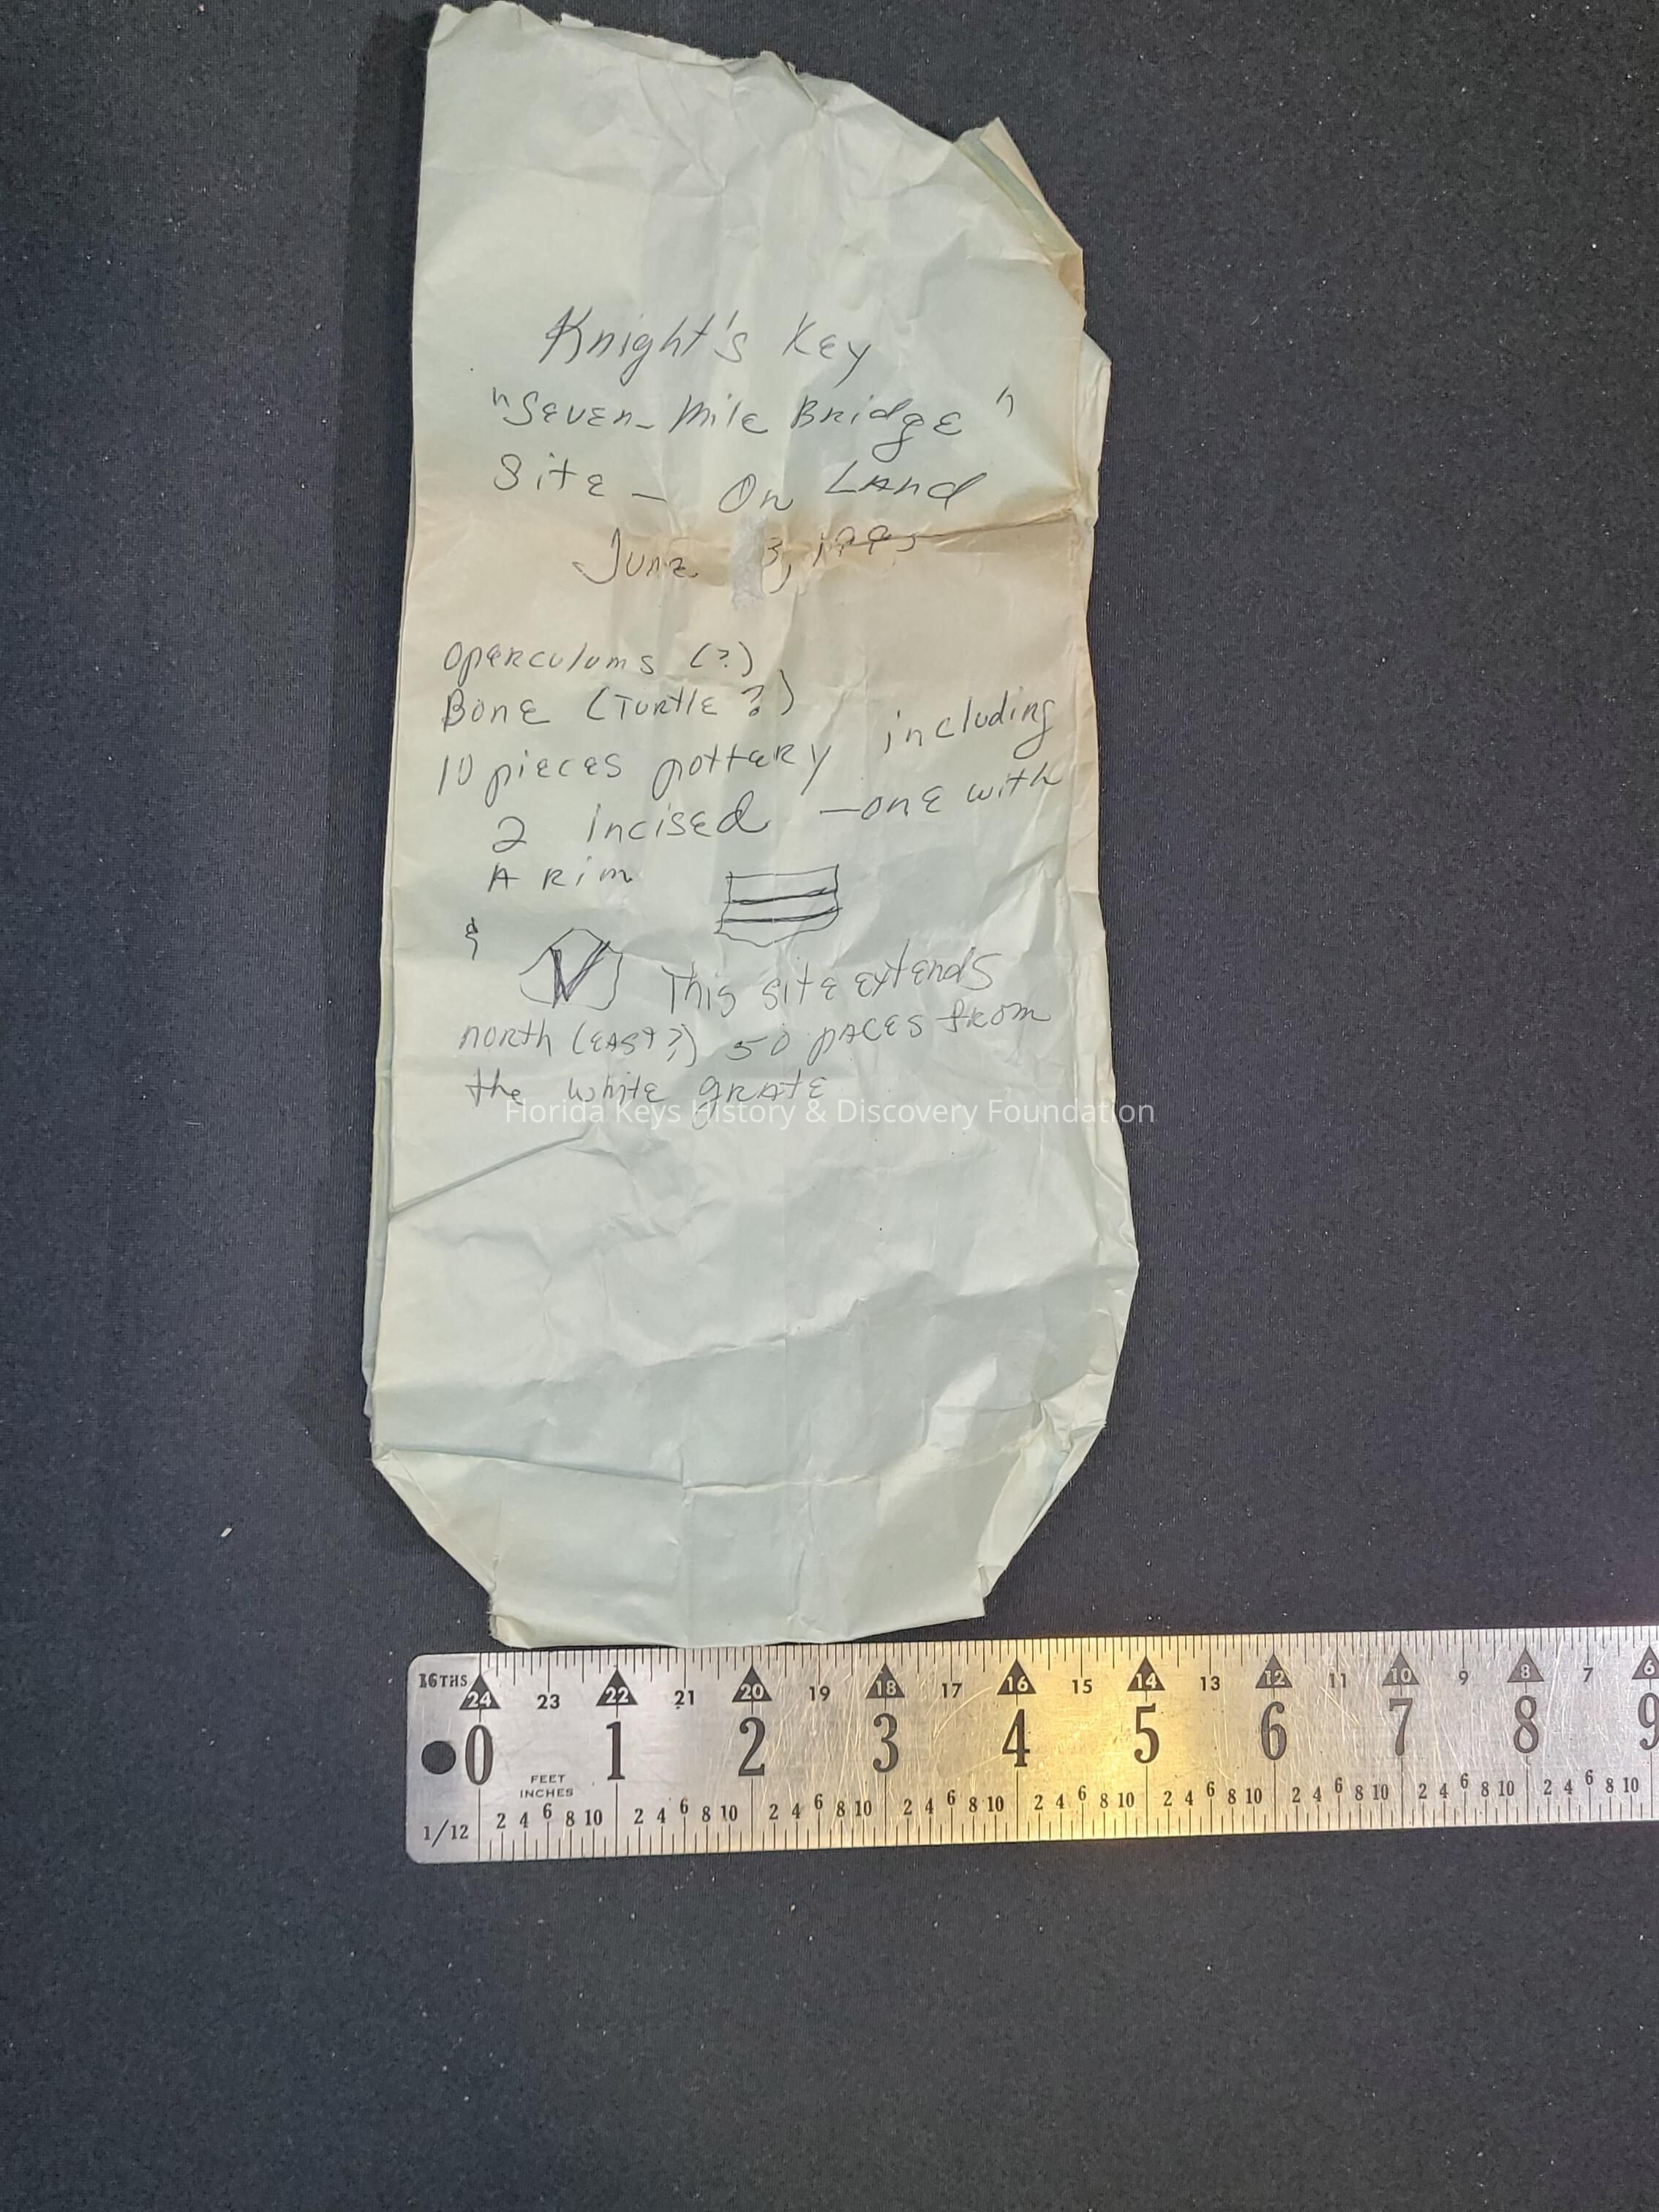 Knight's Key
"Seven-Mile Bridge"
Site — On Land
June 3, 1995
Operculums (?)
Bone (Turtle?)
10 pieces pottery including
2 incised — one with
A rim
&
This site extends
north (east?) 50 paces from
the white grate
Florida Keys History & Discovery Foundation
16THS 24 23 22 21 20 19 18 17 16 15 14 13 12 11 10 9 8 7 6
0 1 2 3 4 5 6 7 8 9
FEET
INCHES
2 4 6 8 10 2 4 6 8 10 2 4 6 8 10 2 4 6 8 10 2 4 6 8 10 2 4 6 8 10 2 4 6 8 10 2 4 6 8 10 2 4 6 8 10
1/12